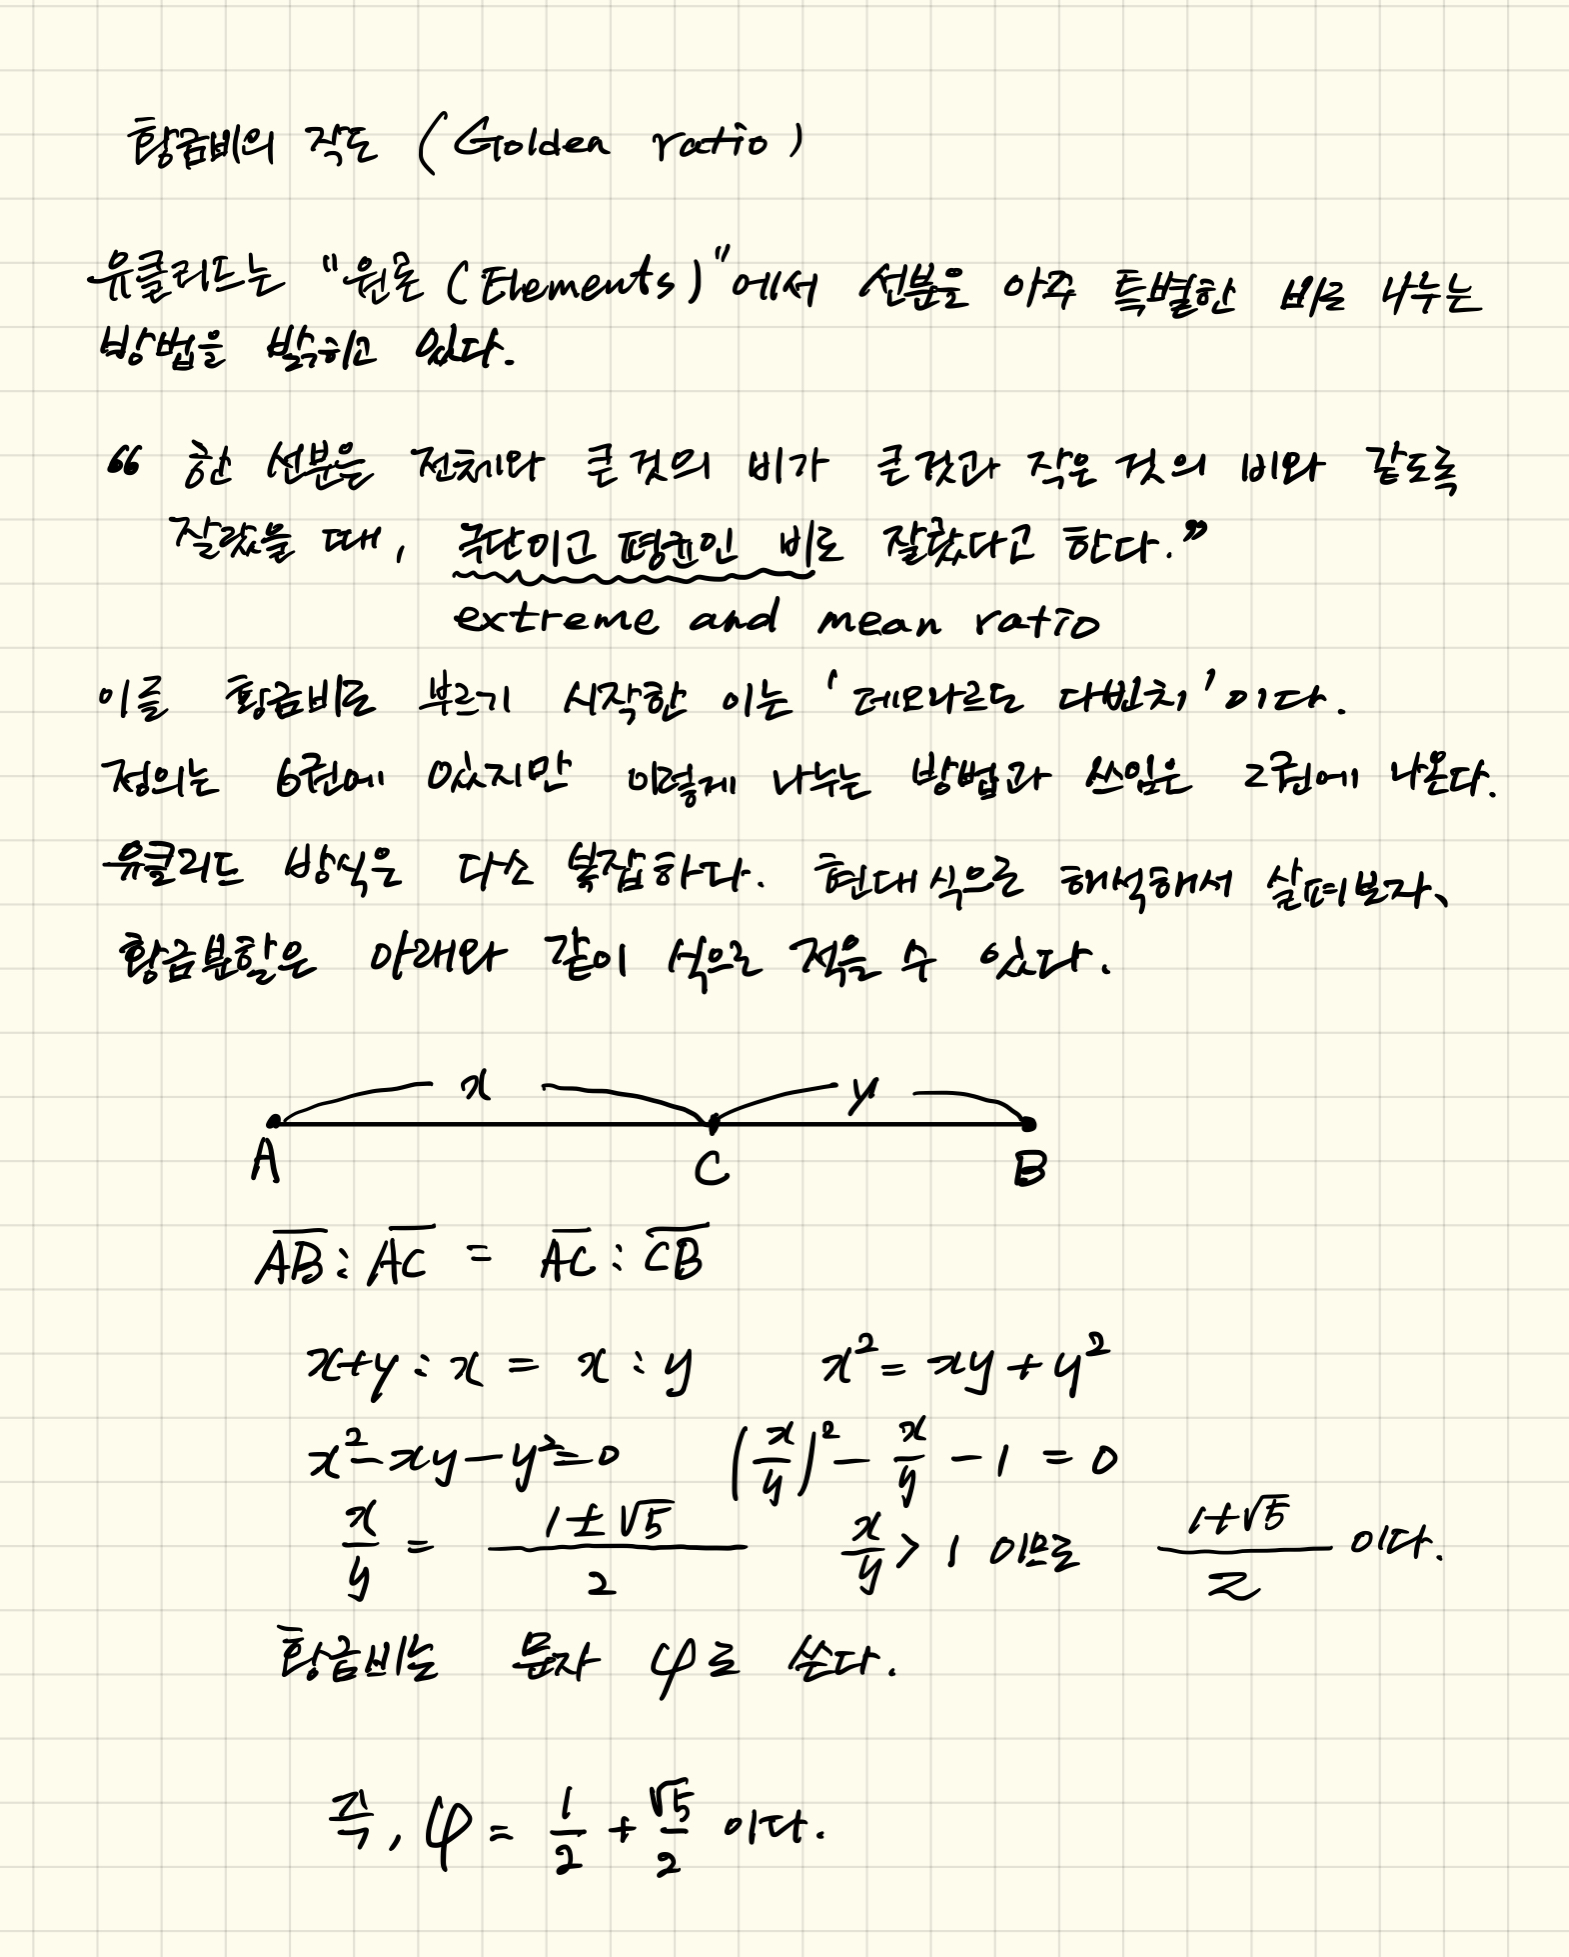 황금비의 작도 (Golden ratio)
유클리드는 "원론 (Elements)"에서 선분을 아주 특별한 비로 나누는
방법을 밝히고 있다.
“ 한 선분은 전체와 큰 것의 비가 큰 것과 작은 것의 비와 같도록
잘랐을 때, 극단이고 평균인 비로 잘랐다고 한다.”
extreme and mean ratio
이를 황금비로 부르기 시작한 이는 '레오나르도 다빈치'이다.
정의는 6권에 있지만 이렇게 나누는 방법과 쓰임은 2권에 나온다.
유클리드 방식은 다소 복잡하다. 현대식으로 해석해서 살펴보자.
황금분할은 아래와 같이 식으로 적을 수 있다.
x y
A C B
A̅B̅ : A̅C̅ = A̅C̅ : C̅B̅
x+y : x = x : y x² = xy + y²
x² - xy - y² = 0 (x/y)² - x/y - 1 = 0
x/y = (1±√5)/2 x/y > 1 이므로 (1+√5)/2 이다.
황금비는 문자 φ로 쓴다.
즉, φ = 1/2 + √5/2 이다.